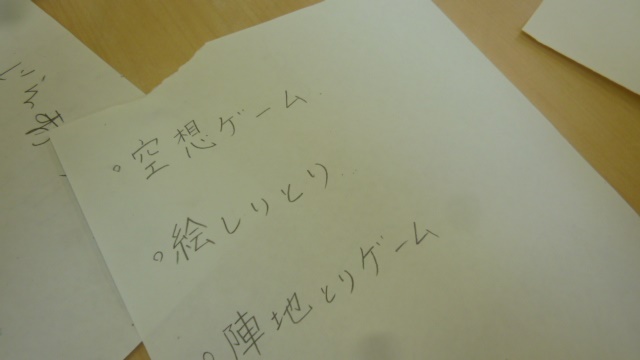 。空想ゲーム..
。絵しりとり...
。陣地とりゲーム